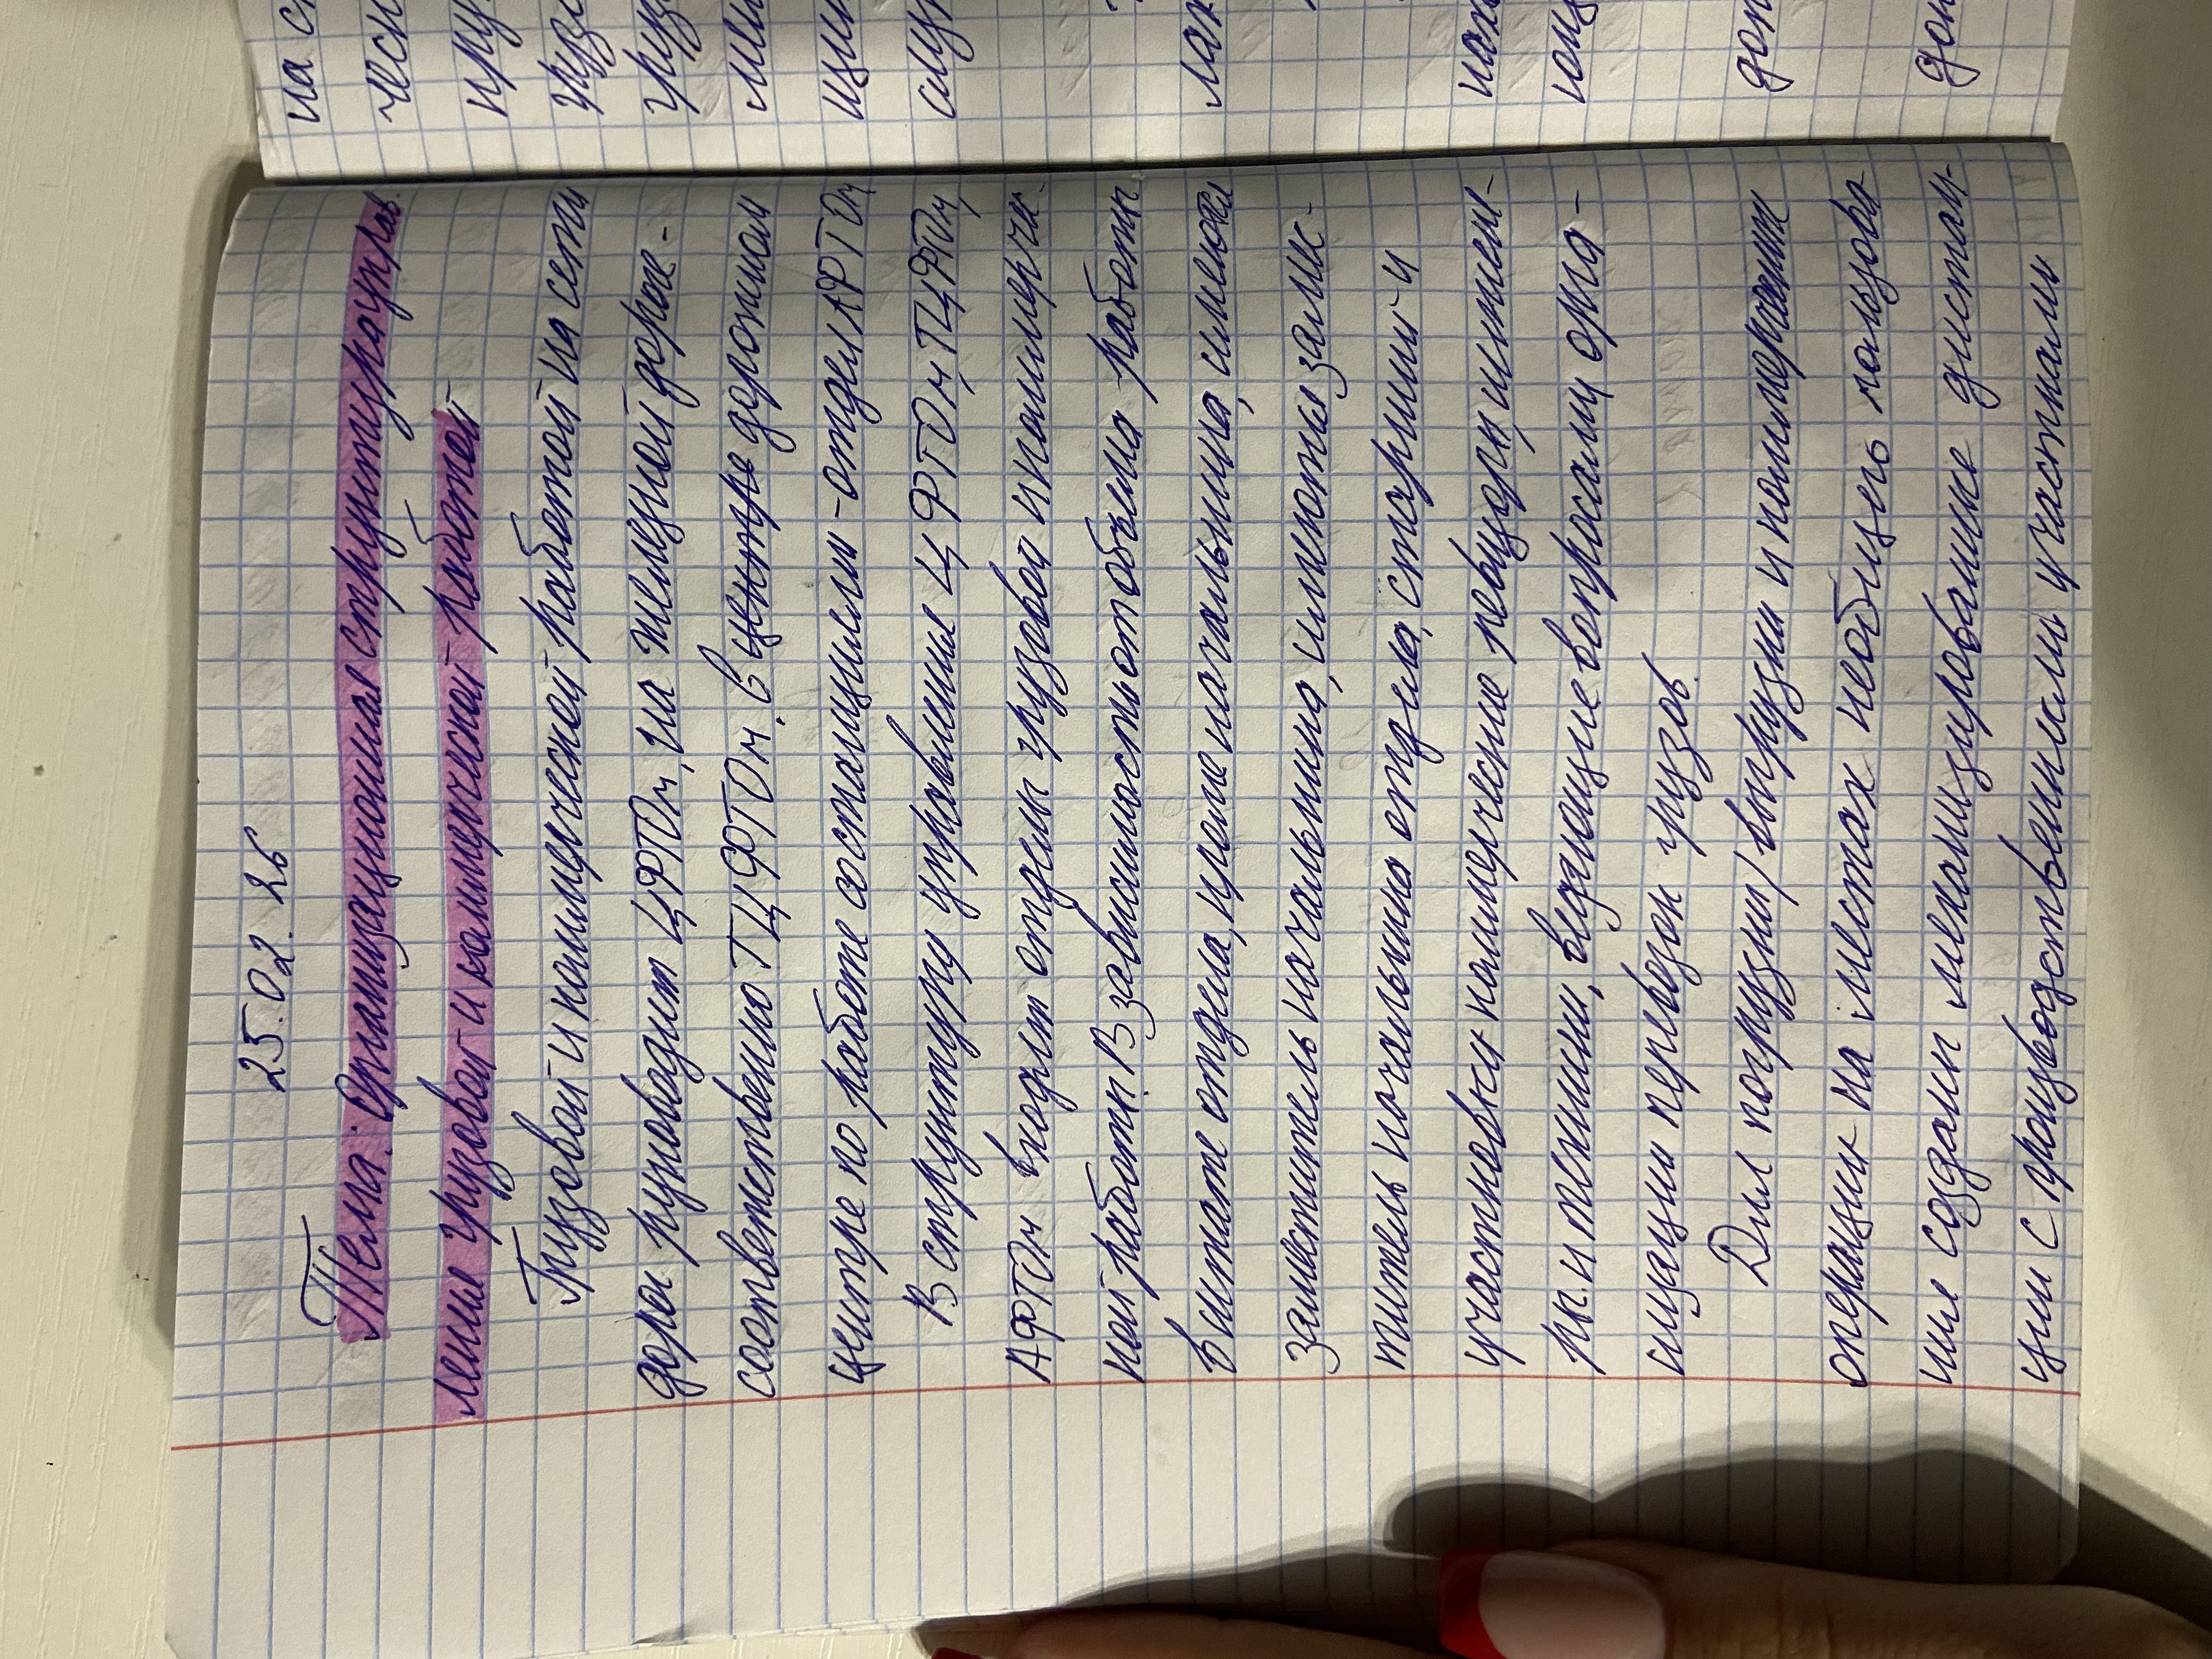 25.02.26
Тема: Организационная структура управ-
ления грузовой и коммерческой работой
Грузовой и коммерческой работой на сети
дорог руководит ЦФТОм, на железной дороге -
соответственно ТЦФТОм. в центре дорожном
центре по работе со станциями - отдел АФТОм
В структуру управления ЦФТОм, ТЦФТОм,
АФТОм входят отделы грузовой и коммерчес-
кой работы. В зависимость от объёма работы
в штате отдела, кроме начальника, имеются
заместитель начальника, имеются замес-
титель начальника отдела, старшими и
участковы коммерческие ревизоры, инжене-
ры и техники, ведающие вопросами орга-
низации перевозок грузов.
Для погрузки/выгрузки и коммерческих
операции на местах необщего пользова-
ние создан механизирование дистан-
ции с производственными участками
на с
чесн
груз
груз
ми
ции
слу
лак
нах
ющ
дор
дор